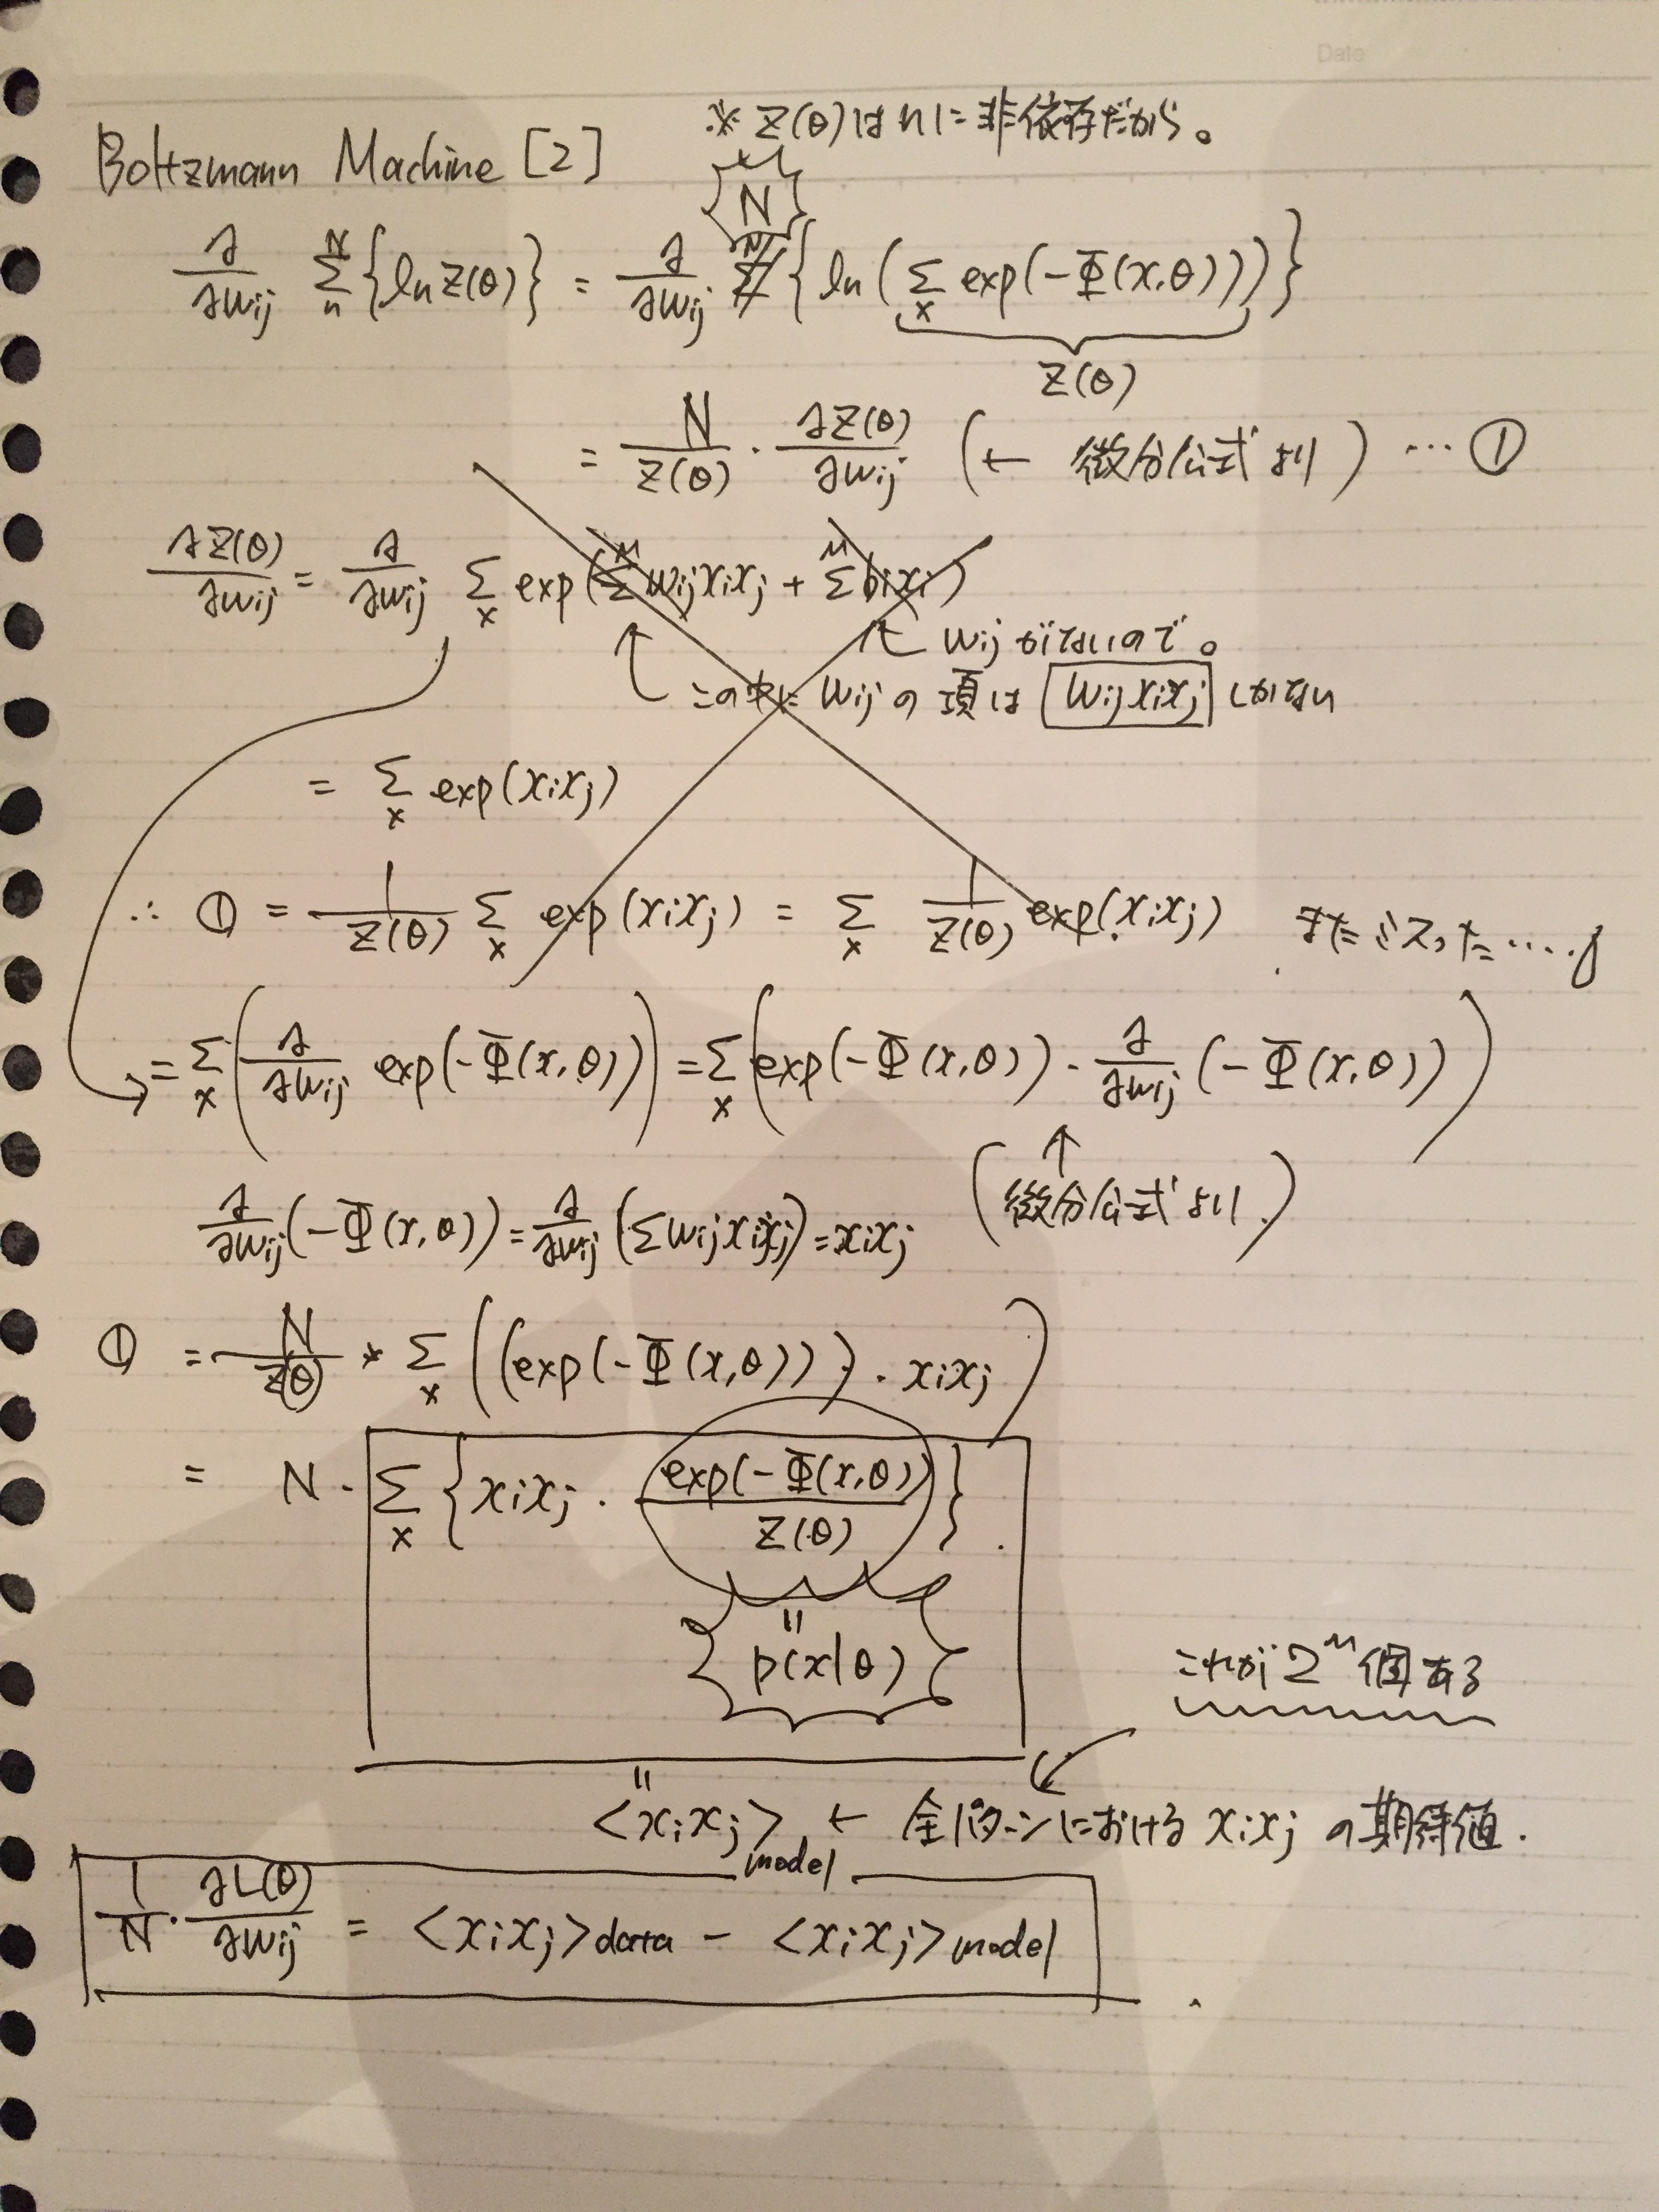 Date
※ Z(θ)はnに非依存だから。
Boltzmann Machine [2]
N
∂/∂wij Σ_n^N {ln Z(θ)} = ∂/∂wij Σ_n^N {ln(Σ_x exp(-Φ(x,θ)))}
Z(θ)
= N/Z(θ) · ∂Z(θ)/∂wij (← 微分公式より) … ①
∂Z(θ)/∂wij = ∂/∂wij Σ_x exp(Σ^M wij xi xj + Σ^M bi xi)
↑ wijがないので。
↑ この中に wijの項は wij xi xj しかない
= Σ_x exp(xi xj)
∴ ① = 1/Z(θ) Σ_x exp(xi xj) = Σ_x 1/Z(θ) exp(xi xj) またミスった….
= Σ_x (∂/∂wij exp(-Φ(x,θ))) = Σ_x (exp(-Φ(x,θ)) · ∂/∂wij (-Φ(x,θ)))
(↑ 微分公式より.)
∂/∂wij (-Φ(x,θ)) = ∂/∂wij (Σ wij xi xj) = xi xj
① = N/Z(θ) * Σ_x ((exp(-Φ(x,θ))) · xi xj)
= N · Σ_x {xi xj · exp(-Φ(x,θ))/Z(θ)} .
=
p(x|θ)
これが 2^M 個ある
=
<xi xj>model ← 全パターンにおける xi xj の期待値.
1/N · ∂L(θ)/∂wij = <xi xj>data - <xi xj>model